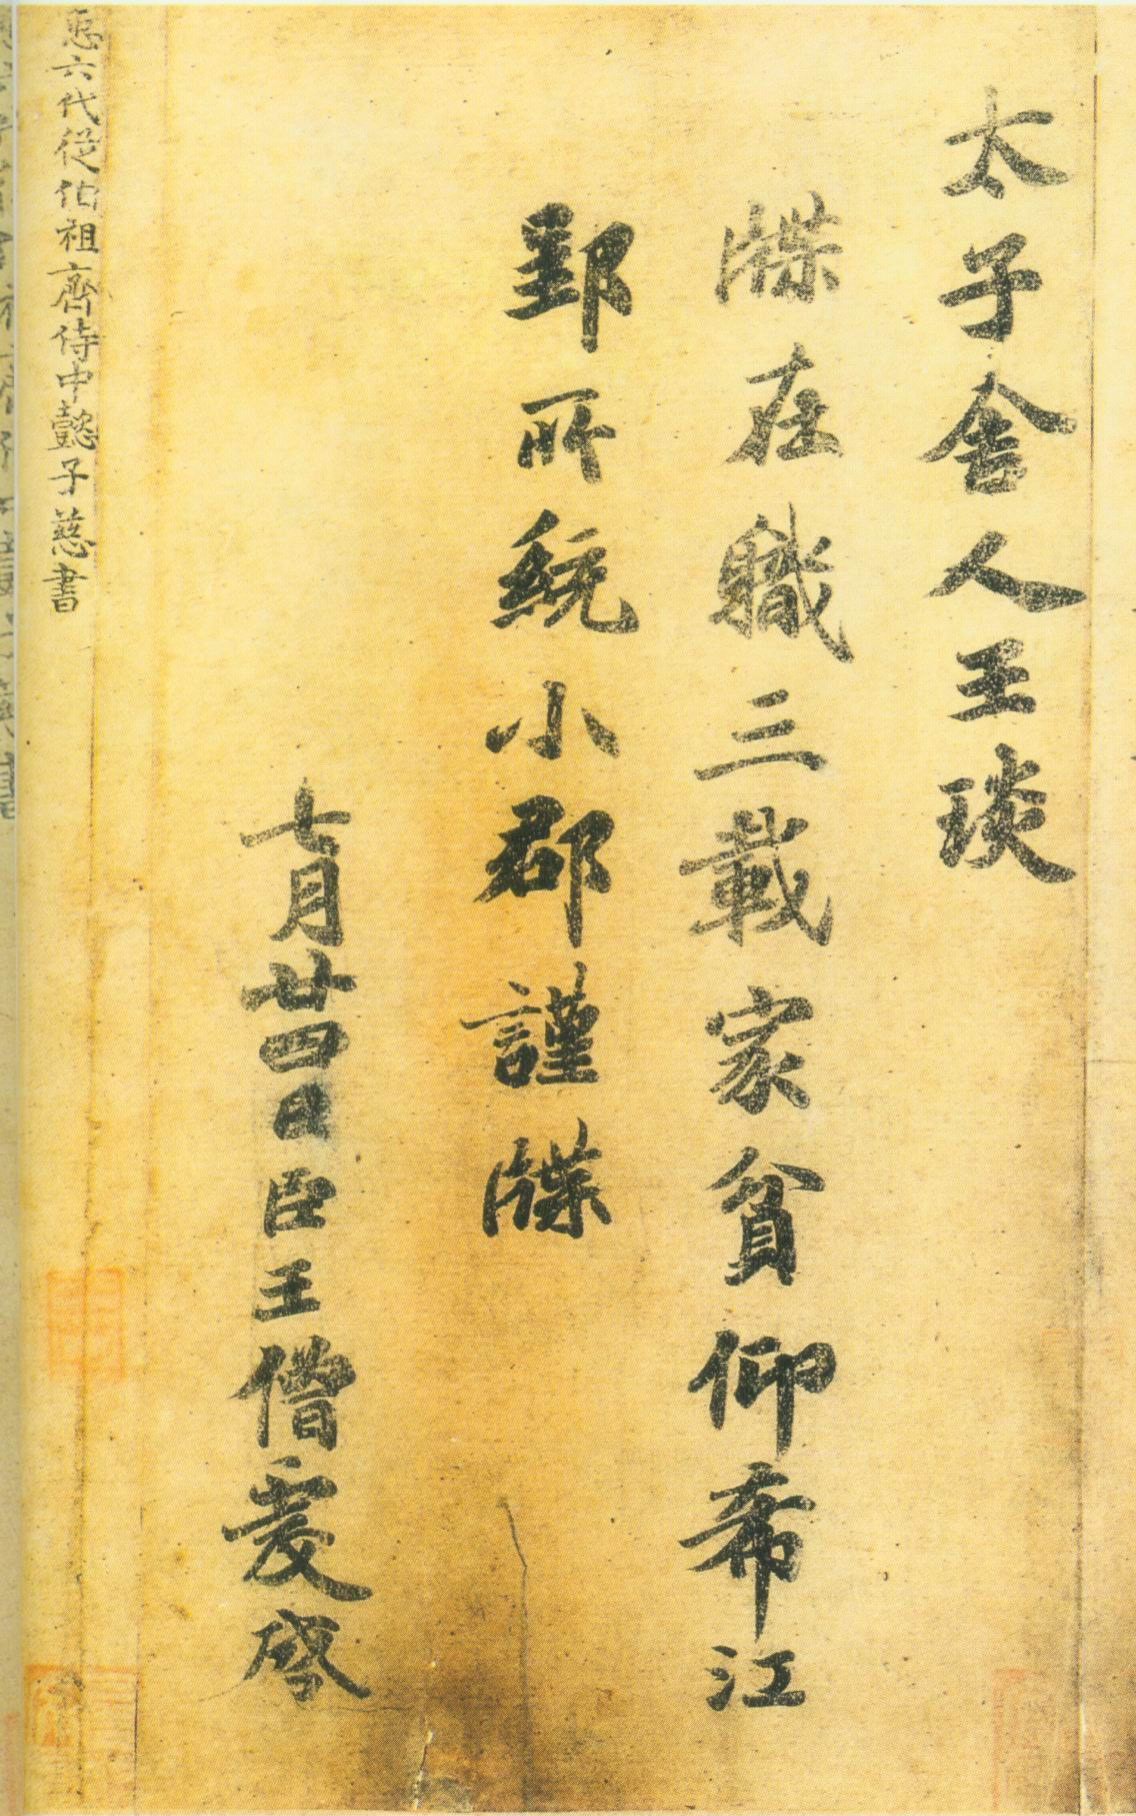 太子舍人王琰
牒在職三載家貧仰希江
郢所統小郡謹牒
七月廿四日臣王僧虔啓
六代從伯祖齊侍中懿子慈書